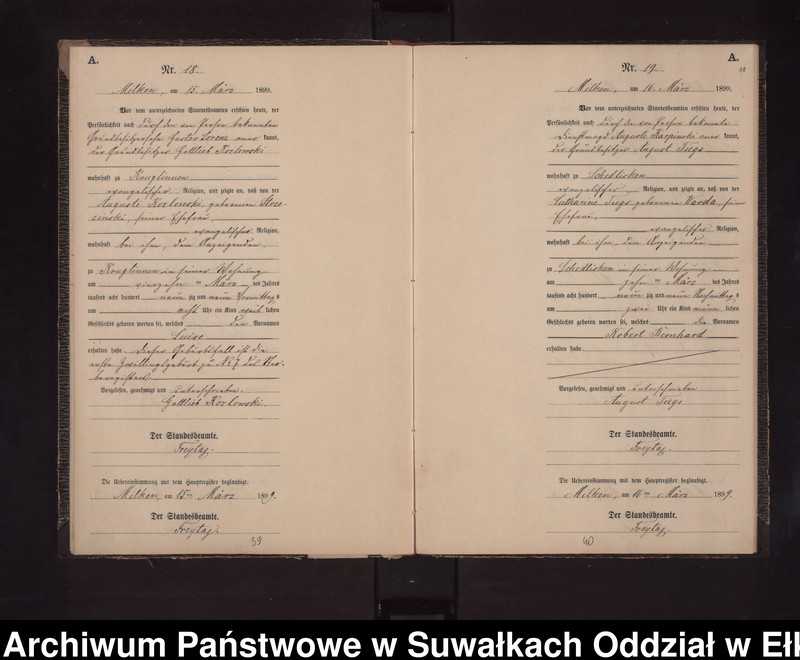 A.
Nr. 18.
Milken, am 15. März 1899.
Vor dem unterzeichneten Standesbeamten erschien heute, der
Persönlichkeit nach durch den von Person bekannten
Grundbesitzersohn Lorenz kannt,
der Grundbesitzer Gottlieb Kozlowski
wohnhaft zu Konglinnen
evangelischer Religion, und zeigte an, daß von der
Auguste Kozlowski, geborenen
seiner Ehefrau,
evangelischer Religion,
wohnhaft bei ihm, dem Anzeigenden,
zu Konglinnen in seiner Wohnung
am vierzehn ten März des Jahres
tausend acht hundert neun zig und neun Vormittags
um acht Uhr ein Kind weib lichen
Geschlechts geboren worden sei, welches den Vornamen
Luise
erhalten habe. Dieser Geburtsfall ist die
erste Zwillingsgeburt zu No 7 des
Vorgelesen, genehmigt und unterschrieben
Gottlieb Kozlowski.
Der Standesbeamte.
Freytag.
Die Uebereinstimmung mit dem Hauptregister beglaubigt.
Milken, am 15ten März 1899.
Der Standesbeamte.
Freytag.
39
A.
Nr. 19.
Milken, am 16. März 1899.
Vor dem unterzeichneten Standesbeamten erschien heute, der
Persönlichkeit nach durch die von Person bekannte
Dienstmagd Auguste Karpinski kannt,
der Grundbesitzer August
wohnhaft zu Schedlisken
evangelischer Religion, und zeigte an, daß von der
Catharine geborene Warda, seiner
Ehefrau,
evangelischer Religion,
wohnhaft bei ihm, dem Anzeigenden
zu Schedlisken in seiner Wohnung
am zehn ten März des Jahres
tausend acht hundert neun zig und neun Nachmittags
um zwei Uhr ein Kind männ lichen
Geschlechts geboren worden sei, welches die Vornamen
Robert Bernhard
erhalten habe.
Vorgelesen, genehmigt und unterschrieben
August
Der Standesbeamte.
Freytag.
Die Uebereinstimmung mit dem Hauptregister beglaubigt.
Milken, am 16ten März 1899.
Der Standesbeamte.
Freytag.
Archiwum Państwowe w Suwałkach Oddział w Ełk